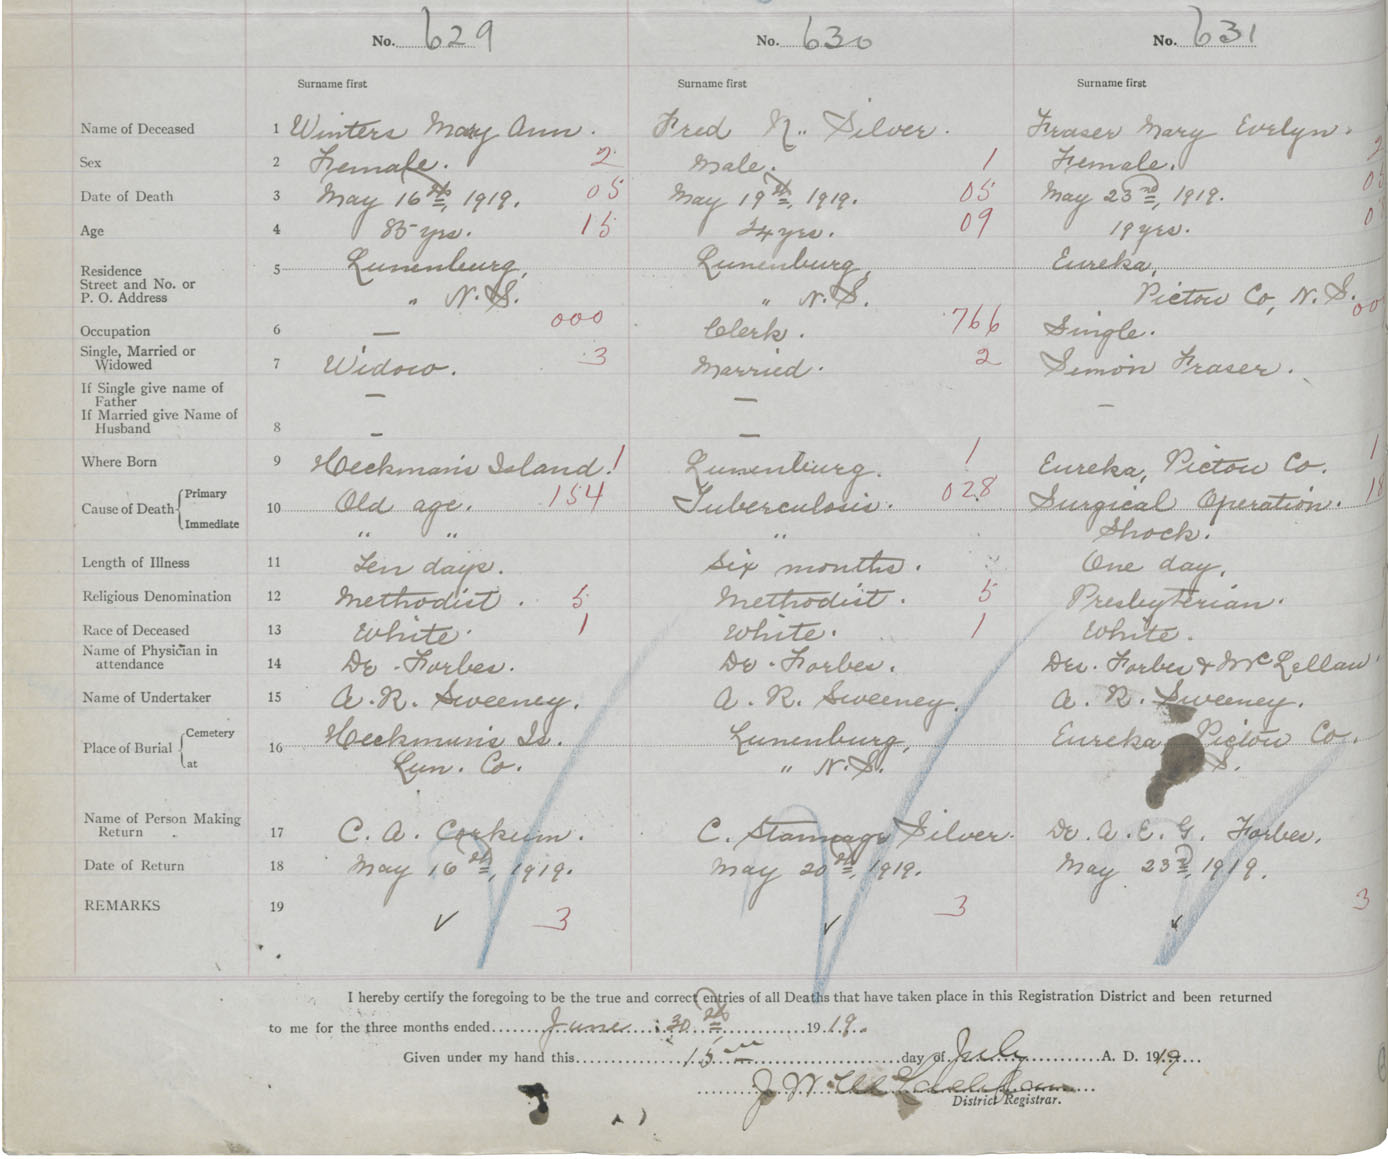 No. 629 No. 630 No. 631
Surname first Surname first Surname first
Name of Deceased 1 Winters Mary Ann. Fred N. Silver. Fraser Mary Evelyn.
Sex 2 Female. 2 Male. 1 Female. 2
Date of Death 3 May 16th, 1919. 05 May 19th, 1919. 05 May 23rd, 1919. 05
Age 4 85 yrs. 15 yrs. 09 19 yrs. 0
Residence 5 Lunenburg, Lunenburg, Eureka,
Street and No. or
P. O. Address " N.S. " N.S. Pictou Co, N.S.
Occupation 6 — 000 Clerk. 766 Single. 00
Single, Married or
Widowed 7 Widow. 3 Married. 2 Simon Fraser.
If Single give name of
Father — — —
If Married give Name of
Husband 8 — —
Where Born 9 Heckman's Island. 1 Lunenburg. 1 Eureka, Pictou Co. 1
Cause of Death Primary 10 Old age. 154 Tuberculosis. 028 Surgical Operation. 18
Immediate " " " Shock.
Length of Illness 11 Ten days. Six months. One day.
Religious Denomination 12 Methodist. 5 Methodist. 5 Presbyterian.
Race of Deceased 13 White. 1 White. 1 White.
Name of Physician in
attendance 14 Dr. Forbes. Dr. Forbes. Drs. Forbes & McLellan.
Name of Undertaker 15 A. R. Sweeney. A. R. Sweeney. A. R. Sweeney.
Place of Burial Cemetery 16 Heckman's Is. Lunenburg, Eureka, Pictou Co.
at Lun. Co. " N.S. S.
Name of Person Making
Return 17 C. A. Corkum. C. Stannage Silver. Dr. A. E. G. Forbes.
Date of Return 18 May 16th, 1919. May 20th, 1919. May 23rd, 1919.
REMARKS 19 ✓ 3 ✓ 3 ✓ 3
I hereby certify the foregoing to be the true and correct entries of all Deaths that have taken place in this Registration District and been returned
to me for the three months ended June 30th 1919.
Given under my hand this 15th day of July A. D. 1919
J W
District Registrar.